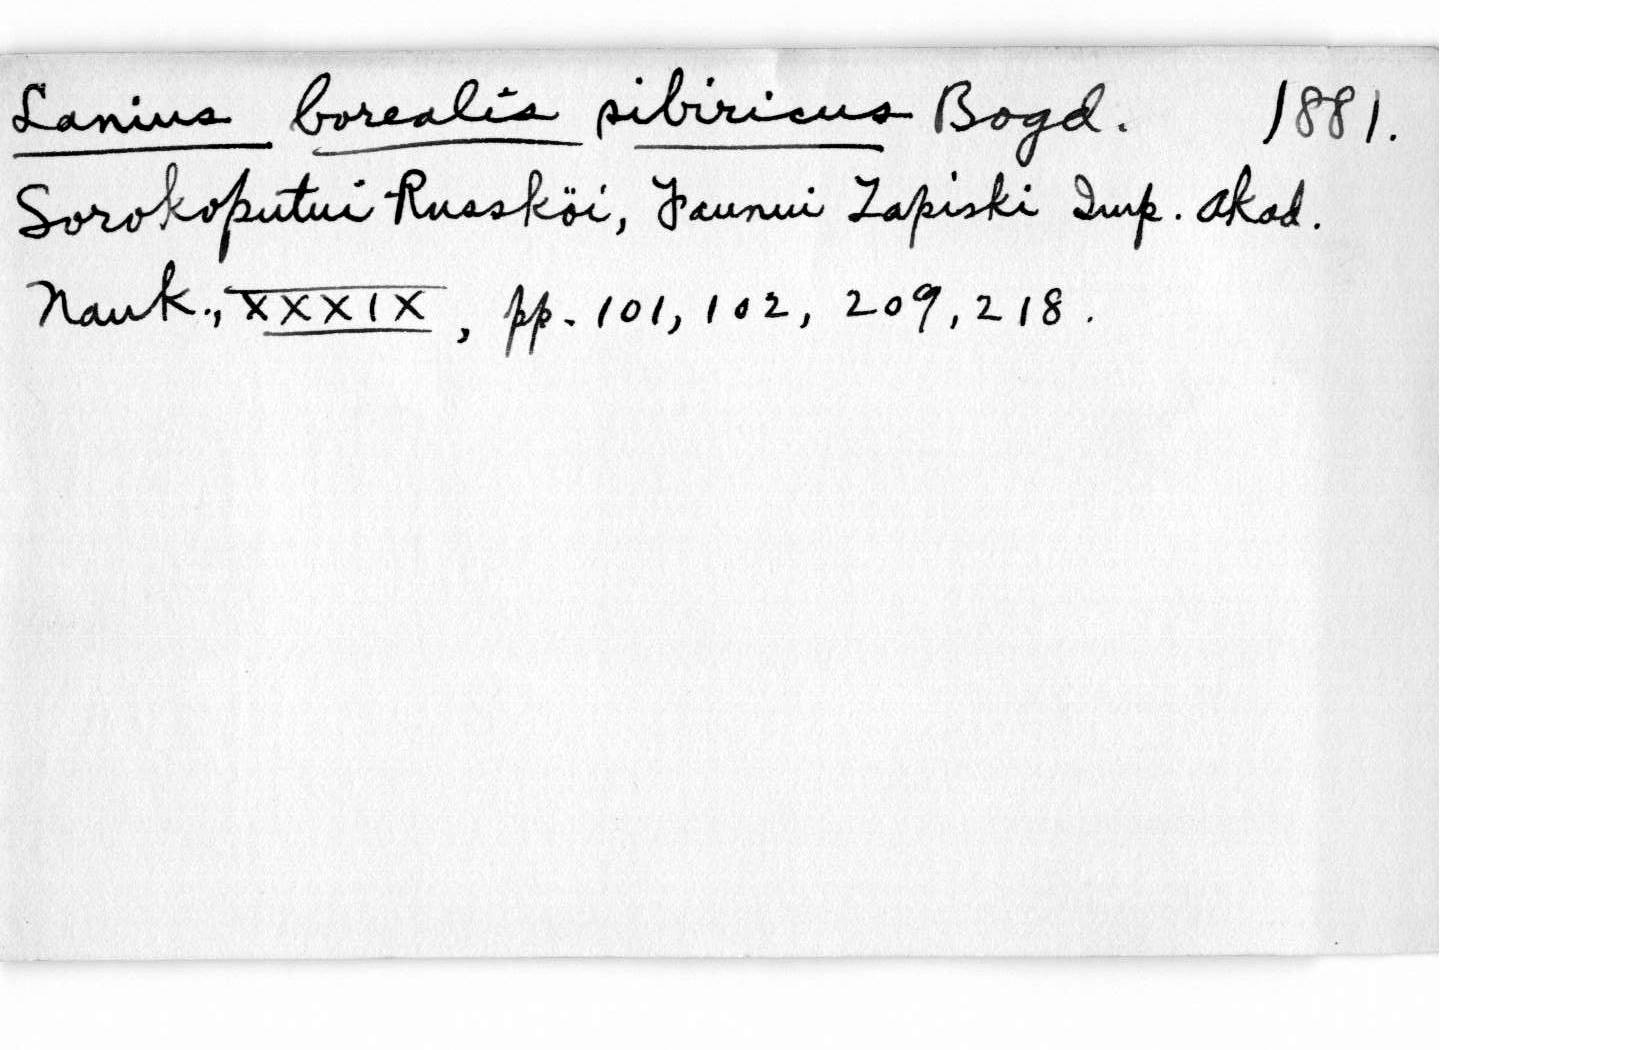 Lanius borealis sibiricus Bogd. 1881.
Sorokoputui Russköi, Faunui Zapiski Imp. Akad.
Nauk., XXXIX, pp. 101, 102, 209, 218.